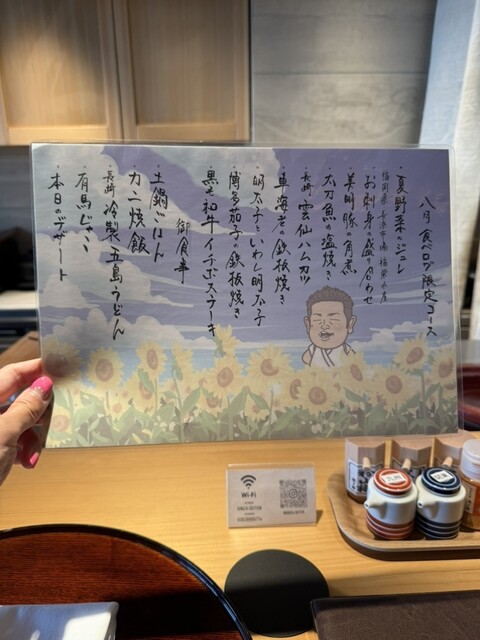 八月 食べログ限定コース
・夏野菜のジュレ
福岡県 長浜市場 福栄水産
・お刺身の盛り合わせ
・美明豚の角煮
・太刀魚の塩焼き
・長崎 雲仙ハムカツ
・車海老の鉄板焼き
・明太子といわし明太子
・博多茄子の鉄板焼き
・黒毛和牛イチボステーキ
御食事
・土鍋ごはん
・カニ炒飯
・長崎 冷製五島うどん
・有馬じゃこ
・本日のデザート
Wi-Fi